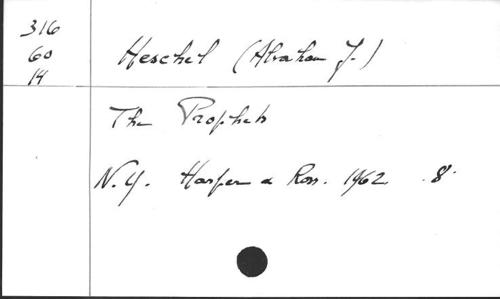 316
60
14
Heschel (Abraham J.)
The Prophets
N.Y. Harper & Row. 1962. 8°